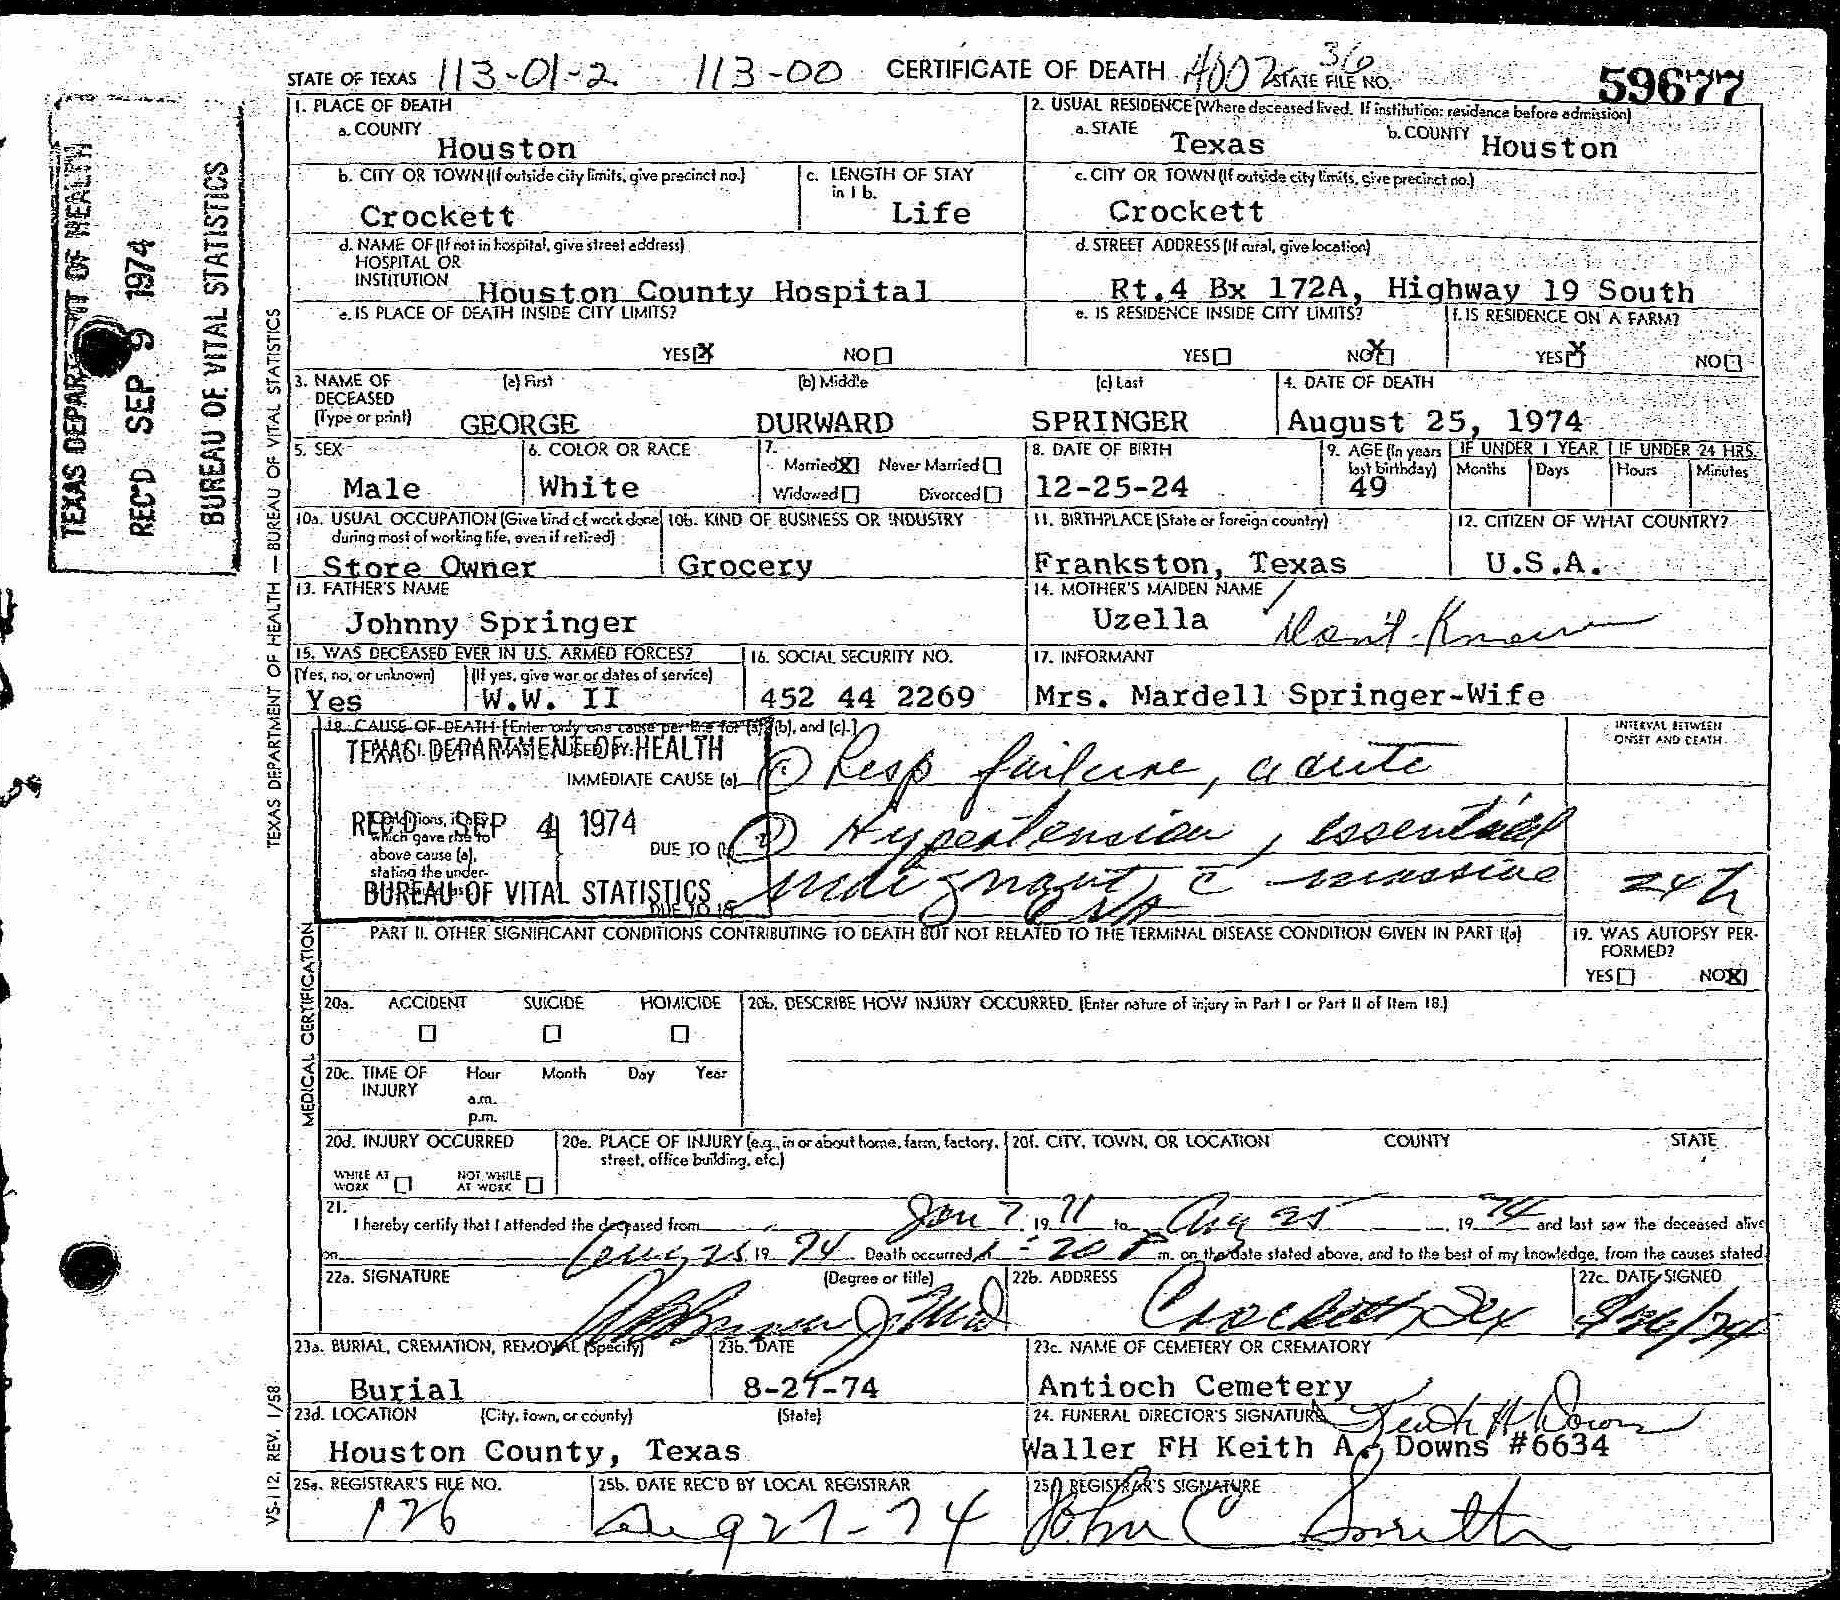 STATE OF TEXAS 113-01-2 113-00 CERTIFICATE OF DEATH STATE FILE NO. 36 59677
1. PLACE OF DEATH
a. COUNTY
Houston
2. USUAL RESIDENCE (Where deceased lived. If institution: residence before admission)
a. STATE Texas b. COUNTY Houston
b. CITY OR TOWN (If outside city limits, give precinct no.)
Crockett
c. LENGTH OF STAY in 1b.
Life
c. CITY OR TOWN (If outside city limits, give precinct no.)
Crockett
d. NAME OF (If not in hospital, give street address)
HOSPITAL OR
INSTITUTION Houston County Hospital
d. STREET ADDRESS (If rural, give location)
Rt.4 Bx 172A, Highway 19 South
e. IS PLACE OF DEATH INSIDE CITY LIMITS?
YES X NO
e. IS RESIDENCE INSIDE CITY LIMITS?
YES NO X
f. IS RESIDENCE ON A FARM?
YES X NO
3. NAME OF DECEASED (Type or print)
(a) First (b) Middle (c) Last
GEORGE DURWARD SPRINGER
4. DATE OF DEATH
August 25, 1974
5. SEX
Male
6. COLOR OR RACE
White
7.
Married X Never Married
Widowed Divorced
8. DATE OF BIRTH
12-25-24
9. AGE (In years last birthday)
49
IF UNDER 1 YEAR
Months Days
IF UNDER 24 HRS.
Hours Minutes
10a. USUAL OCCUPATION (Give kind of work done during most of working life, even if retired)
Store Owner
10b. KIND OF BUSINESS OR INDUSTRY
Grocery
11. BIRTHPLACE (State or foreign country)
Frankston, Texas
12. CITIZEN OF WHAT COUNTRY?
U.S.A.
13. FATHER'S NAME
Johnny Springer
14. MOTHER'S MAIDEN NAME
Uzella Don't Know
15. WAS DECEASED EVER IN U.S. ARMED FORCES?
(Yes, no, or unknown) (If yes, give war or dates of service)
Yes W.W. II
16. SOCIAL SECURITY NO.
452 44 2269
17. INFORMANT
Mrs. Mardell Springer-Wife
18. CAUSE OF DEATH [Enter only one cause per line for (a), (b), and (c).]
INTERVAL BETWEEN ONSET AND DEATH
TEXAS DEPARTMENT OF HEALTH
REC'D SEP 4 1974
BUREAU OF VITAL STATISTICS
IMMEDIATE CAUSE (a) ① Resp failure, acute
Conditions, if any, which gave rise to above cause (a), stating the under-
DUE TO (b) ② Hypertension, essential
malignant, c̄ massive 24 h
DUE TO (c) CVA
MEDICAL CERTIFICATION
PART II. OTHER SIGNIFICANT CONDITIONS CONTRIBUTING TO DEATH BUT NOT RELATED TO THE TERMINAL DISEASE CONDITION GIVEN IN PART I(a)
19. WAS AUTOPSY PERFORMED?
YES NO X
20a. ACCIDENT SUICIDE HOMICIDE
20b. DESCRIBE HOW INJURY OCCURRED. (Enter nature of injury in Part I or Part II of Item 18.)
20c. TIME OF INJURY Hour Month Day Year
a.m.
p.m.
20d. INJURY OCCURRED
WHILE AT WORK NOT WHILE AT WORK
20e. PLACE OF INJURY (e.g., in or about home, farm, factory, street, office building, etc.)
20f. CITY, TOWN, OR LOCATION COUNTY STATE
21.
I hereby certify that I attended the deceased from Jan 7 1971 to Aug 25, 1974 and last saw the deceased alive
on Aug 25 1974 Death occurred at 1:20 P m. on the date stated above, and to the best of my knowledge, from the causes stated.
22a. SIGNATURE (Degree or title)
22b. ADDRESS
Crockett, Tex
22c. DATE SIGNED
8/26/74
23a. BURIAL, CREMATION, REMOVAL (Specify)
Burial
23b. DATE
8-27-74
23c. NAME OF CEMETERY OR CREMATORY
Antioch Cemetery
23d. LOCATION (City, town, or county) (State)
Houston County, Texas
24. FUNERAL DIRECTOR'S SIGNATURE Keith A Downs
Waller FH Keith A. Downs #6634
25a. REGISTRAR'S FILE NO.
126
25b. DATE REC'D BY LOCAL REGISTRAR
Aug 27-74
25c. REGISTRAR'S SIGNATURE
John C Smith
TEXAS DEPARTMENT OF HEALTH
REC'D SEP 9 1974
BUREAU OF VITAL STATISTICS
TEXAS DEPARTMENT OF HEALTH — BUREAU OF VITAL STATISTICS
VS-112, REV. 1/58